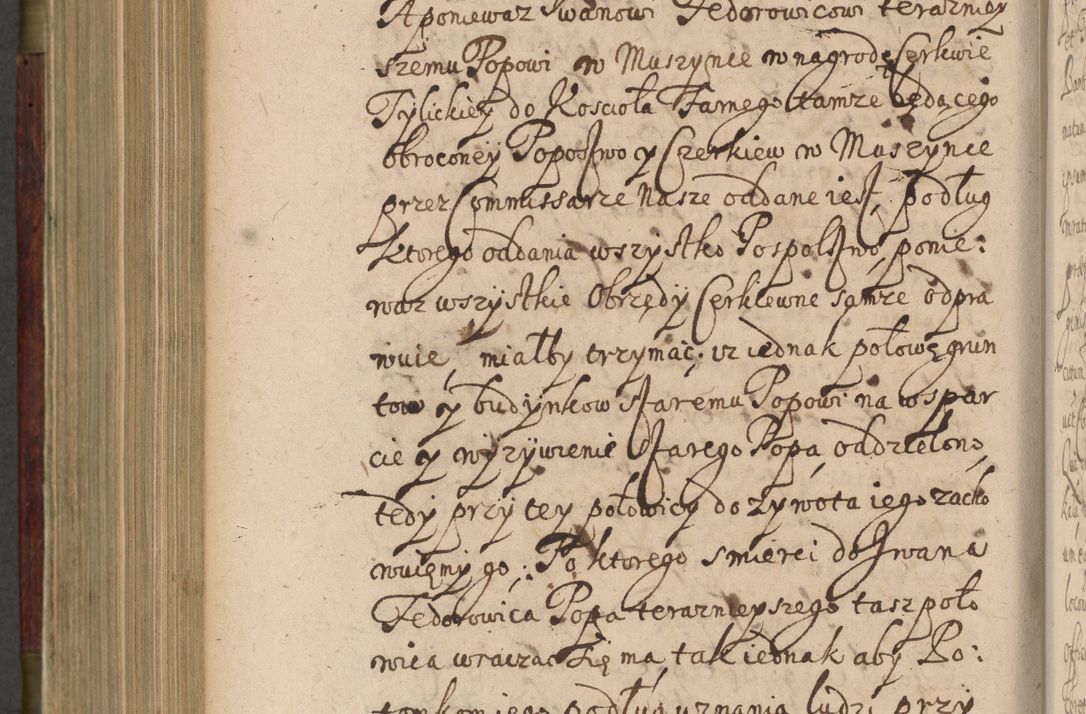 A poniewaz Iwanowi Fedorowicowi terazniey
szemu Popowi w Muszynce w nagrodę Cerkwie
Tylickiey do Koscioła Farnego tamze będącego
obroconey Popostwo y Czerkiew w Muszynce
przez Commissarze Nasze oddane iest, podług
ktorego oddania wszystko Pospolstwo, ponie:
waz wszystkie Obrzędy Cerkiewne samze odpra
wuie, miałby trzymać; iz iednak połowę grun
tow y budynkow staremu Popowi na wspar
cie y wyzywienie starego Popa, oddzielono,
tedy przy tey połowicy do zywota iego zacho
wuięmy go: Po ktorego smierci do Iwana
Fedorowica Popa teraznieyszego tasz poło
wica wracac się ma, tak iednak aby Po:
tomkom iego podług uznania ludzi przy